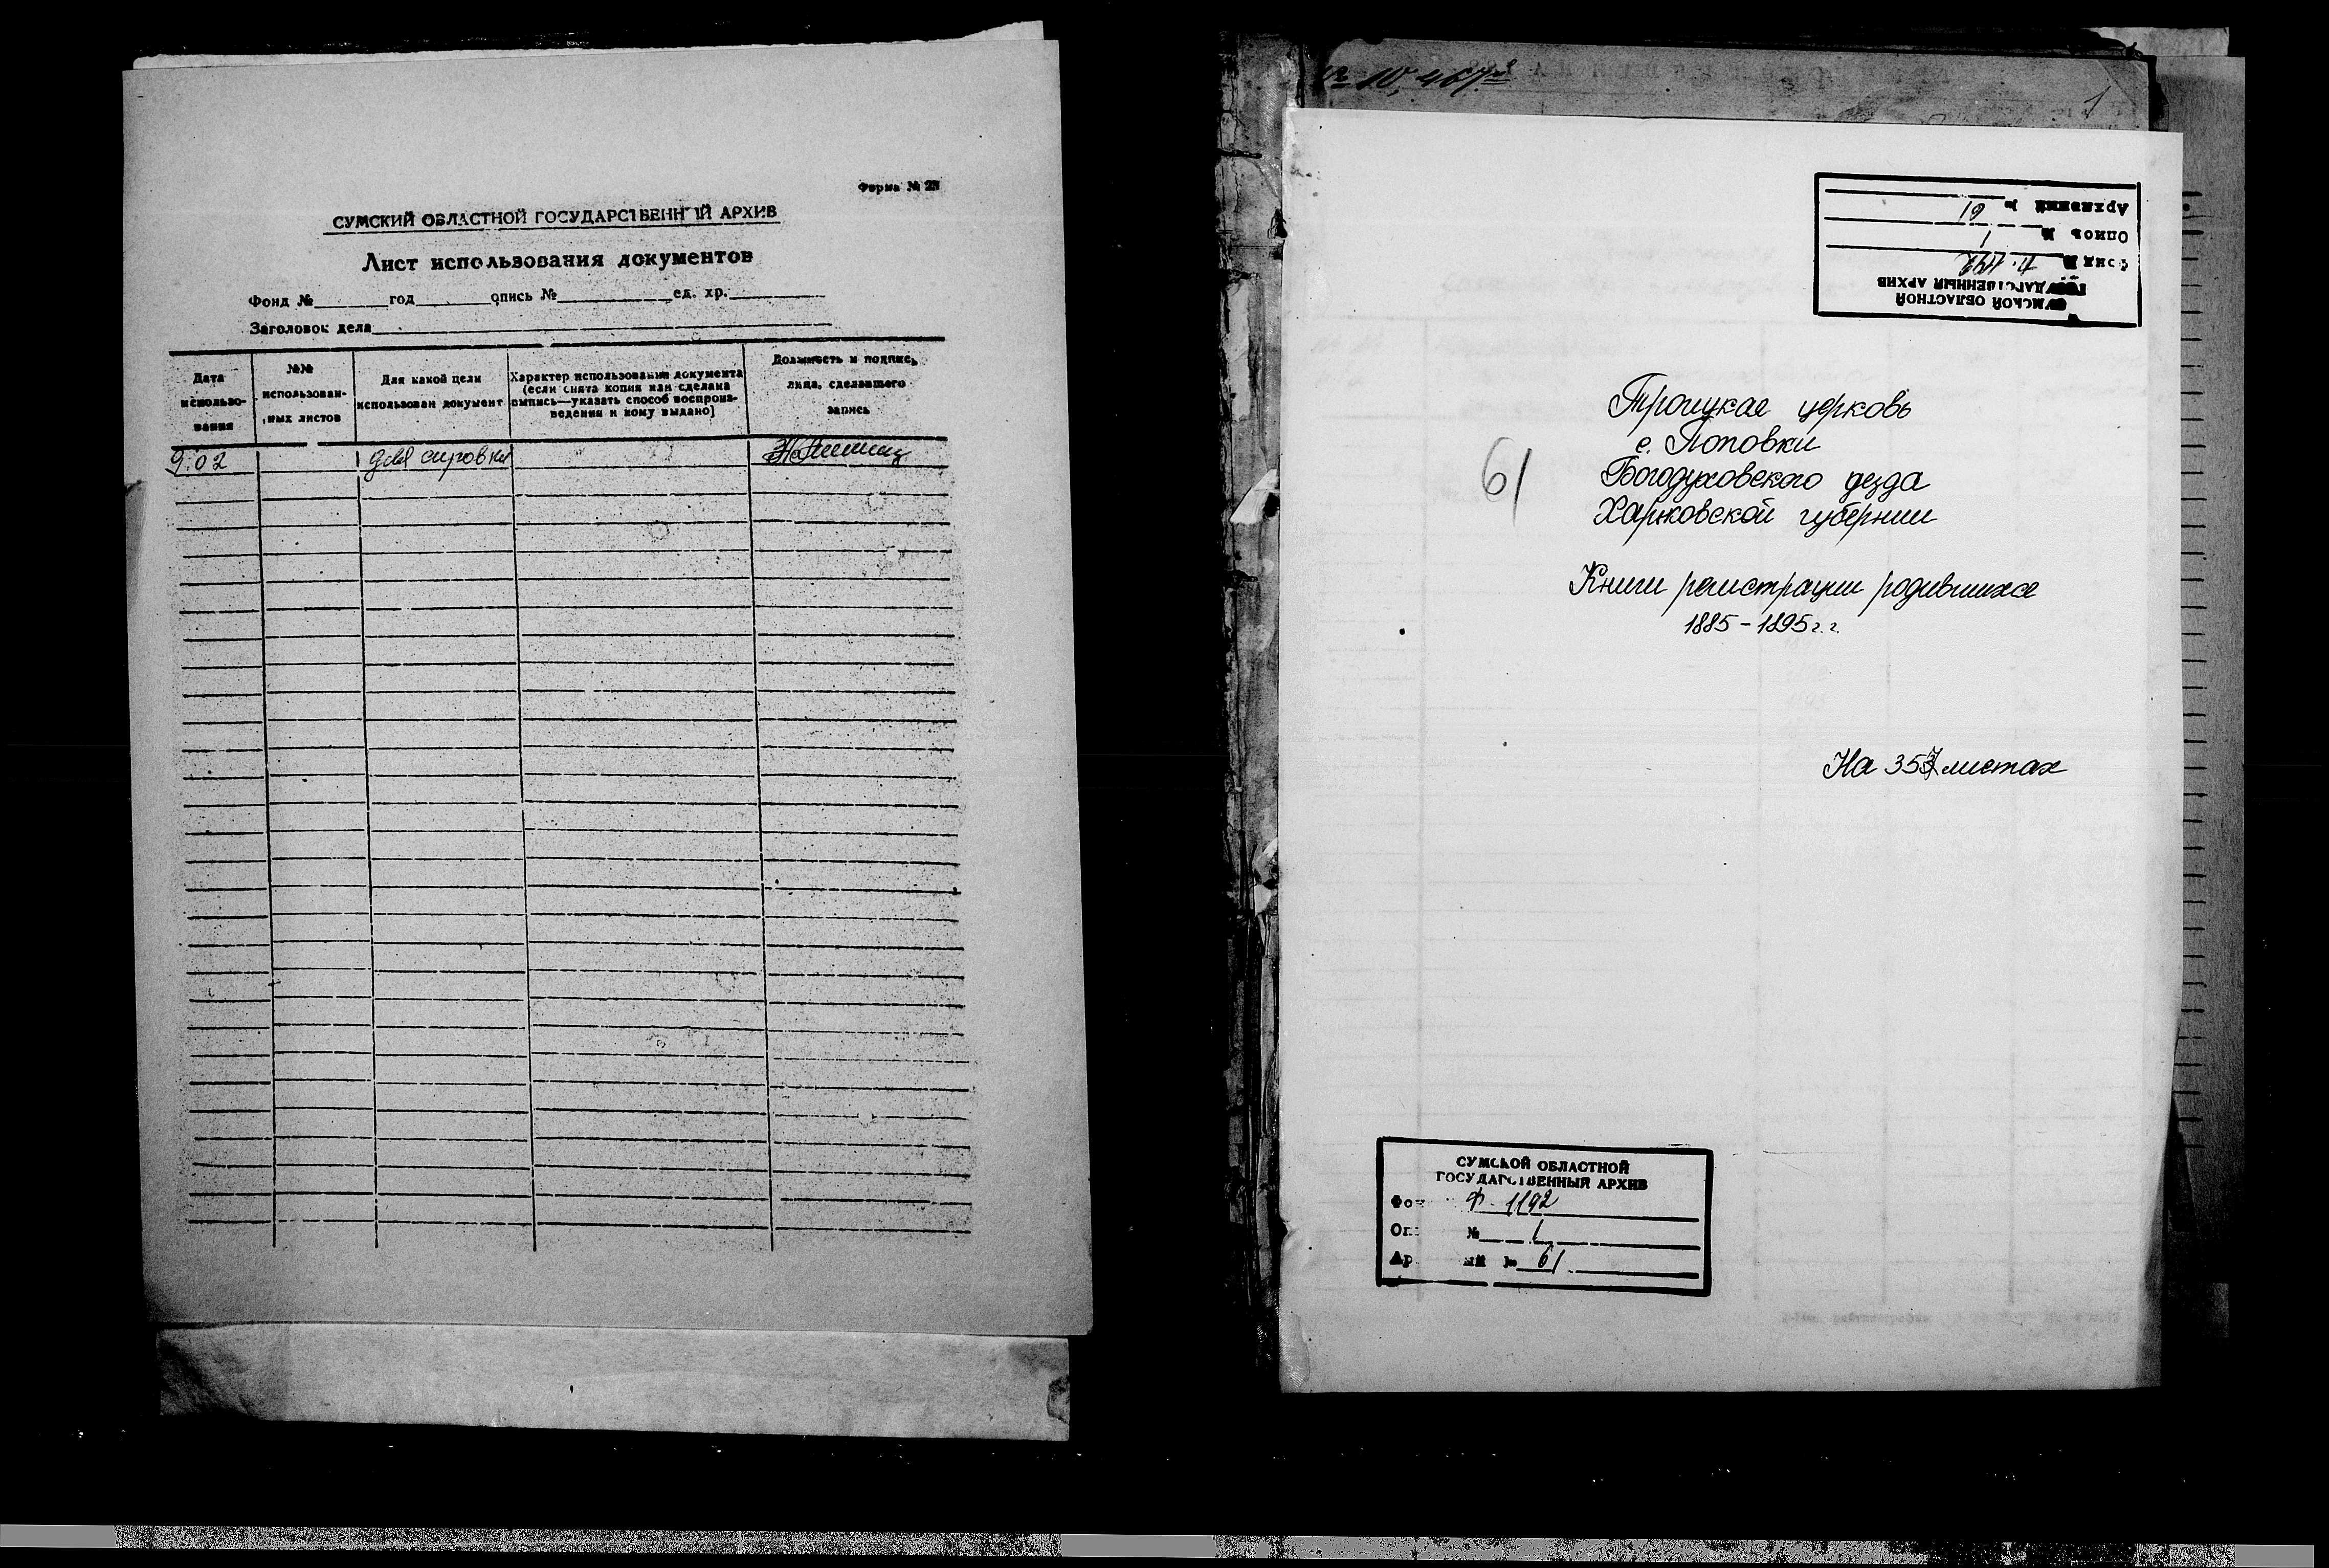 Форма № 23
СУМСКИЙ ОБЛАСТНОЙ ГОСУДАРСТВЕННЫЙ АРХИВ
Лист использования документов
Фонд № год опись № ед. хр.
Заголовок дела
Дата использо-вания
№№ использован-ных листов
Для какой цели использован документ
Характер использования документа (если снята копия или сделана выпись—указать способ воспроиз-ведения и кому выдано)
Должность и подпись лица, сделавшего запись
9.02 для справки
№ 10,467
1
СУМСКОЙ ОБЛАСТНОЙ
ГОСУДАРСТВЕННЫЙ АРХИВ
Фонд № 1192
Опись № 1
Архивный № 61
Троицкая церковь
с. Поповки
61
Богодуховского уезда
Харьковской губернии
Книги регистрации родившихся
1885-1895 г.г.
На 357 листах
СУМСКОЙ ОБЛАСТНОЙ
ГОСУДАРСТВЕННЫЙ АРХИВ
Фон Ф-1192
Оп № 1
Ар ый № 61